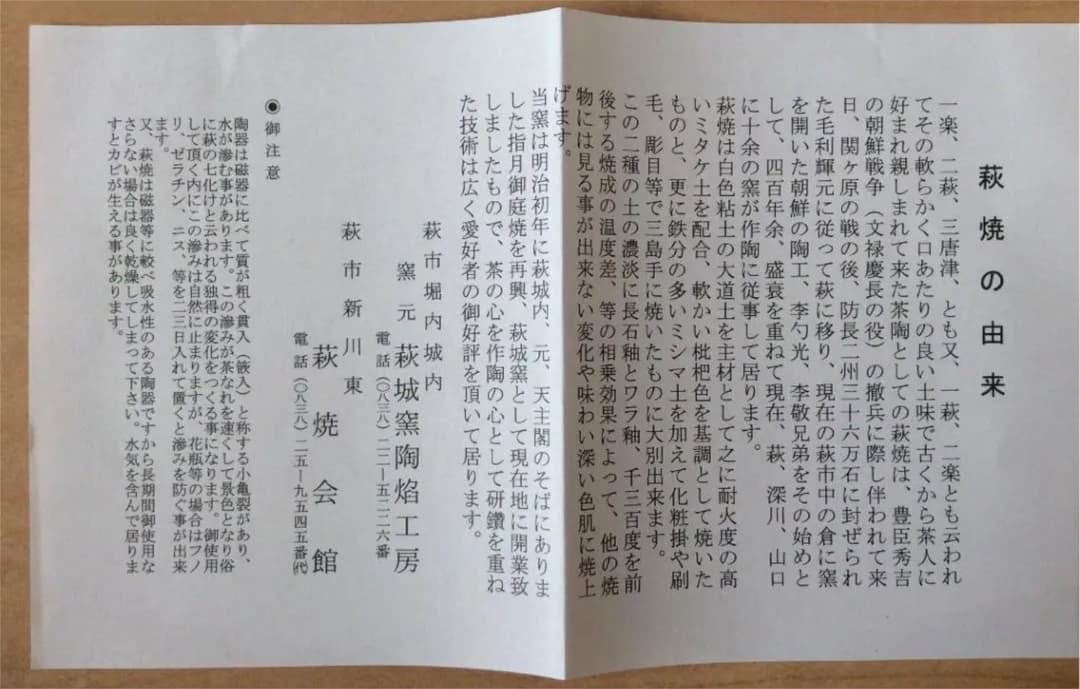 萩焼の由来
一楽、二萩、三唐津、とも又、一萩、二楽とも云われ
てその軟らかく口あたりの良い土味で古くから茶人に
好まれ親しまれて来た茶陶としての萩焼は、豊臣秀吉
の朝鮮戦争（文禄慶長の役）の撤兵に際し伴われて来
日、関ヶ原の戦の後、防長二州三十六万石に封ぜられ
た毛利輝元に従って萩に移り、現在の萩市中の倉に窯
を開いた朝鮮の陶工、李勺光、李敬兄弟をその始めと
して、四百年余、盛衰を重ねて現在、萩、深川、山口
に十余の窯が作陶に従事して居ります。
萩焼は白色粘土の大道土を主材として之に耐火度の高
いミタケ土を配合、軟かい枇杷色を基調として焼いた
ものと、更に鉄分の多いミシマ土を加えて化粧掛や刷
毛、彫目等で三島手に焼いたものに大別出来ます。
この二種の土の濃淡に長石釉とワラ釉、千三百度を前
後する焼成の温度差、等の相乗効果によって、他の焼
物には見る事が出来ない変化や味わい深い色肌に焼上
げます。
当窯は明治初年に萩城内、元、天主閣のそばにありま
した指月御庭焼を再興、萩城窯として現在地に開業致
しましたもので、茶の心を作陶の心として研鑽を重ね
た技術は広く愛好者の御好評を頂いて居ります。
萩市堀内城内
窯元 萩城窯陶焰工房
電話（〇八三八）二二―五二二六番
萩市新川東
萩焼会館
電話（〇八三八）二五―九五四五番㈹
◉御注意
陶器は磁器に比べて質が粗く貫入（嵌入）と称する小亀裂があり、
水が滲む事があります。この滲みが茶なれを速くして景色となり俗
に萩の七化けと云われる独得の変化をつくる事になります。御使用
して頂く内にこの滲みは自然に止まりますが、花瓶等の場合はフノ
リ、ゼラチン、ニス、等を二三日入れて置くと滲みを防ぐ事が出来
ます。
又、萩焼は磁器等に較べ吸水性のある陶器ですから長期間御使用な
さらない場合は良く乾燥してしまって下さい。水気を含んで居りま
すとカビが生える事があります。